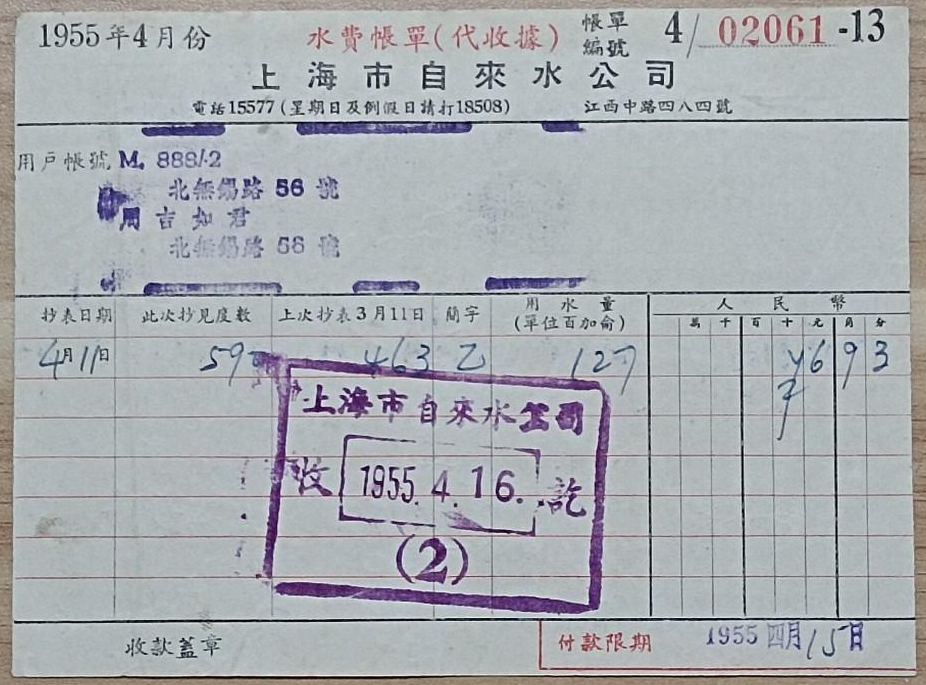 1955年4月份
水費帳單(代收據)
帳單編號 4/02061-13
上海市自來水公司
電話15577(星期日及例假日請打18508) 江西中路四八四號
用戶帳號 M. 888/2
北無錫路 56 號
周吉如君
北無錫路 56 號
抄表日期 此次抄見度數 上次抄表3月11日 簡字 用水量 人民幣
(單位百加侖) 萬 千 百 十 元 角 分
4月11日 59 463 乙 127 ¥6 9 3
上海市自來水公司
收 1955. 4. 16. 訖
(2)
收款蓋章 付款限期 1955 四月15日